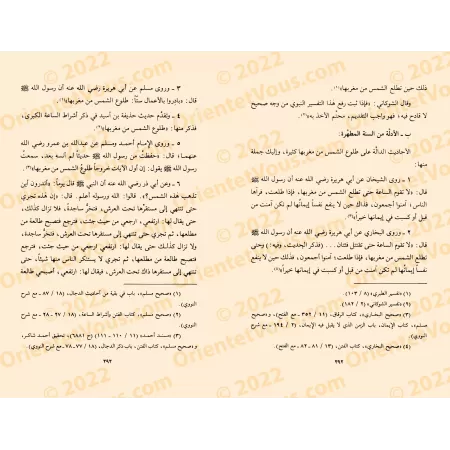 ذلك حين تطلع الشمس من مغربها»(١).
وقال الشوكاني: «فإذا ثبت رفع هذا التفسير النبوي من وجه صحيح
لا قادح فيه، فهو واجب التقديم، محتم الأخذ به»(٢).
ب ـ الأدلّة من السنة المطهَّرة:
الأحاديث الدالَّة على طلوع الشمس من مغربها كثيرة، وإليك جملة
منها:
١ ـ روى الشيخان عن أبي هريرة رضي الله عنه أن رسول الله ﷺ
قال: «لا تقوم الساعة حتى تطلع الشمس من مغربها، فإذا طلعت، فرآها
الناس، آمنوا أجمعون، فذاك حين لا ينفع نفساً إيمانُها لم تكن آمنت من
قبل أو كسبت في إيمانها خيراً»(٣).
٢ ـ وروى البخاري عن أبي هريرة رضي الله عنه أن رسول الله ﷺ
قال: «لا تقوم الساعة حتى تقتتل فئتان... (فذكر الحديث، وفيه:) وحتى
تطلع الشمس من مغربها، فإذا طلعت، آمنوا أجمعون، فذلك حين لا ينفع
نفساً إيمانُها لم تكن آمنت من قبل أو كسبت في إيمانها خيراً»(٤).
(١) «تفسير الطبري» (٨ / ١٠٣).
(٢) «تفسير الشوكاني» (٢ / ١٨٢).
(٣) «صحيح البخاري»، كتاب الرقاق، (١١ / ٣٥٢ ـ مع الفتح)، و«صحيح
مسلم»، كتاب الإيمان، باب الزمن الذي لا يقبل فيه الإيمان، (٢ / ١٩٤ ـ مع شرح
النووي).
(٤) «صحيح البخاري»، كتاب الفتن، (١٣ / ٨١ ـ ٨٢ ـ مع الفتح).
٣٩٢
٣ ـ وروى مسلم عن أبي هريرة رضي الله عنه أن رسول الله ﷺ
قال: «بادِروا بالأعمال ستّاً: طلوع الشمس من مغربها»(١).
٤ ـ وتقدَّم حديث حذيفة بن أسيد في ذكر أشراط الساعة الكبرى،
فذكر منها: «طلوع الشمس من مغربها»(٢).
٥ ـ وروى الإمام أحمد ومسلم عن عبدالله بن عمرو رضي الله
عنهما؛ قال: «حفظتُ من رسول الله ﷺ حديثاً لم أنسه بعد، سمعتُ
رسول الله ﷺ يقول: إن أول الآيات خروجاً طلوعُ الشمس من مغربها»(٣).
٦ ـ وعن أبي ذر رضي الله عنه أن النبي ﷺ قال يوماً: «أتدرون أين
تذهب هذه الشمس؟». قالوا: الله ورسوله أعلم. قال: «إن هذه تجري
حتى تنتهي إلى مستقرِّها تحت العرش، فتخرُّ ساجدة، فلا تزال كذلك،
حتى يقال لها: ارتفعي، ارجعي من حيث جئت، فترجع فتصبح طالعة من
مطلعها، ثم تجري حتى تنتهي إلى مستقرها تحت العرش، فتخر ساجدة،
ولا تزال كذلك حتى يقال لها: ارتفعي، ارجعي من حيث جئت، فترجع
فتصبح طالعة من مطلعها، ثم تجري لا يستنكر الناس منها شيئاً، حتى
تنتهي إلى مستقرها ذاك تحت العرش، فيقال لها: ارتفعي، أصبحي طالعة
(١) «صحيح مسلم»، باب في بقية من أحاديث الدجال، (١٨ / ٨٧ ـ مع شرح
النووي).
(٢) «صحيح مسلم»، كتاب الفتن وأشراط الساعة، (١٨ / ٢٧ ـ ٢٨ ـ مع شرح
النووي).
(٣) «مسند أحمد» (١١ / ١١٠ ـ ١١١) (ح ٦٨٨١)، تحقيق أحمد شاكر،
و«صحيح مسلم»، كتاب الفتن، باب ذكر الدجال، (١٨ / ٧٧ ـ ٧٨ ـ مع شرح النووي).
٣٩٣
© 2022
OrientezVous.com